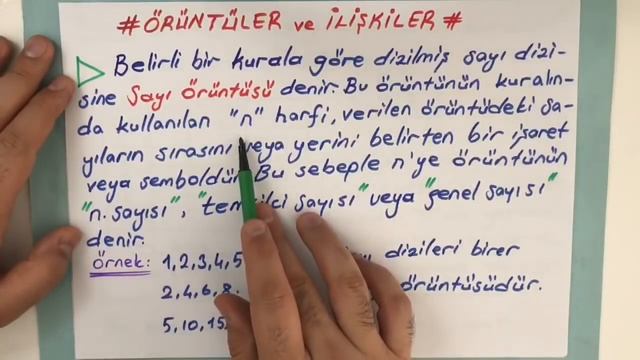 # ÖRÜNTÜLER ve İLİŞKİLER #
Belirli bir kurala göre dizilmiş sayı dizi-
sine Sayı Örüntüsü denir. Bu örüntünün kuralın-
da kullanılan "n" harfi, verilen örüntüdeki sa-
yıların sırasını veya yerini belirten bir işaret
veya semboldür. Bu sebeple n'ye örüntünün
"n. sayısı", "temsilci sayısı" veya "genel sayısı"
denir.
Örnek: 1,2,3,4,5 dizileri birer
2,4,6,8. örüntüsüdür.
5,10,15